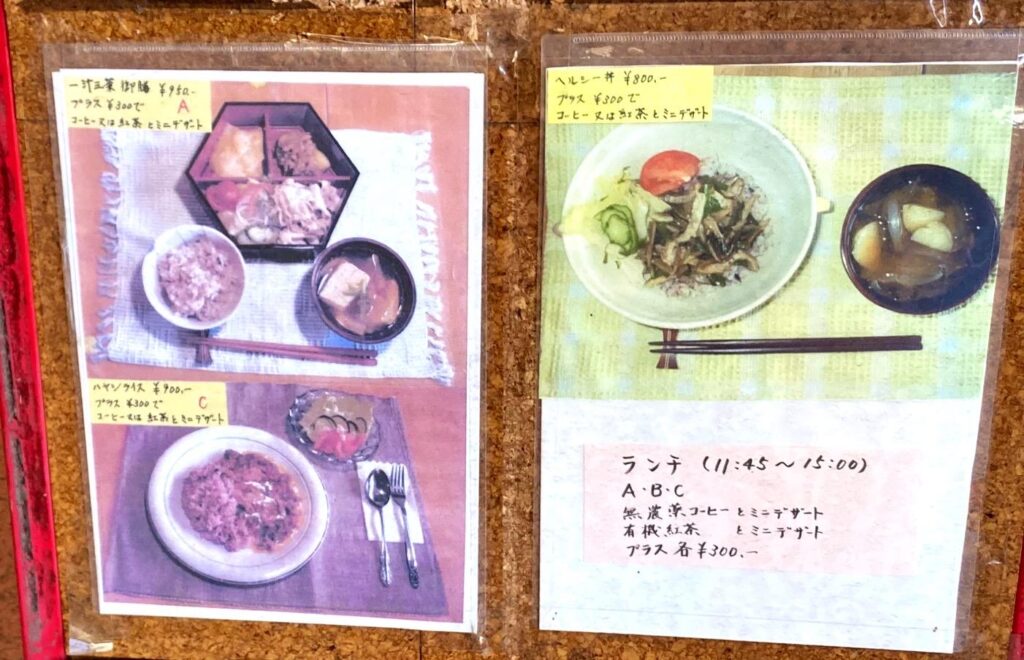 一汁三菜御膳 ¥950.-
プラス ¥300で A
コーヒー又は紅茶とミニデザート
ハヤシライス ¥900.-
プラス ¥300で C
コーヒー又は紅茶とミニデザート
ヘルシー丼 ¥800.-
プラス ¥300で
コーヒー又は紅茶とミニデザート
ランチ (11:45～15:00)
A・B・C
無農薬コーヒーとミニデザート
有機紅茶 とミニデザート
プラス各¥300.-